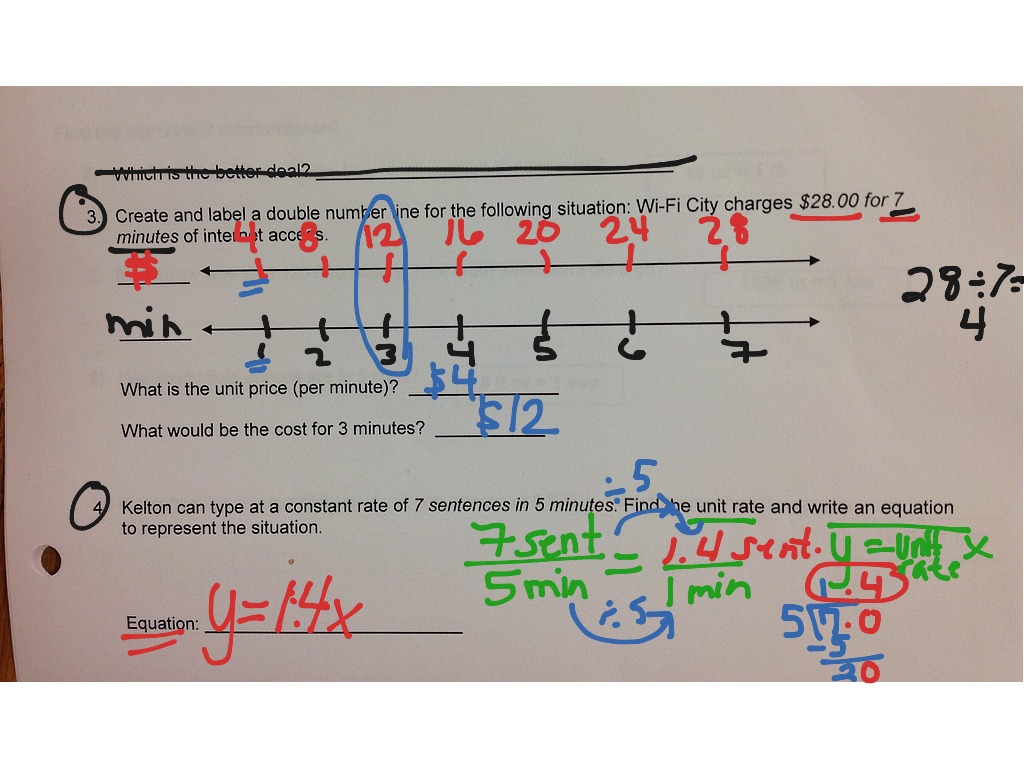 Which is the better deal?
3. Create and label a double number line for the following situation: Wi-Fi City charges $28.00 for 7
minutes of internet access.
4 8 12 16 20 24 28
$
28÷7=
4
min
1 2 3 4 5 6 7
What is the unit price (per minute)? $4
What would be the cost for 3 minutes? $12
÷5
4. Kelton can type at a constant rate of 7 sentences in 5 minutes. Find the unit rate and write an equation
to represent the situation.
7 sent = 1.4 sent. y = unit rate x
5 min 1 min
÷5
1.4
5 7.0
-5
20
Equation: y=1.4x